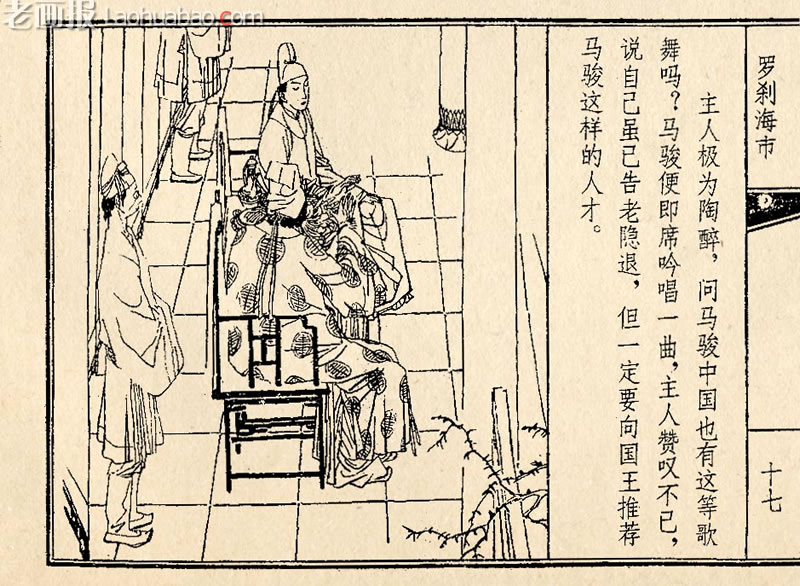 老画报
Laohuabao.com
罗刹海市
主人极为陶醉，问马骏中国也有这等歌
舞吗？马骏便即席吟唱一曲，主人赞叹不已，
说自己虽已告老隐退，但一定要向国王推荐
马骏这样的人才。
十七